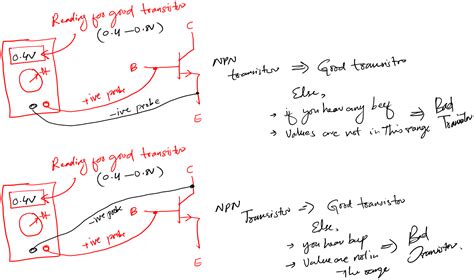 Reading for good transistor
(0.4 – 0.8V)
0.4V
C
B
+ive probe
-ive probe
E
NPN
transistor ⇒ Good transistor
Else,
→ if you hear any beep
→ values are not in This range
⇒ Bad
Transistor
Reading for good transistor
(0.4 – 0.8V)
0.4V
C
-ive probe
B
+ive probe
E
NPN
Transistor ⇒ Good transistor
Else,
→ you hear beep
→ Value are not in
The range
⇒ Bad
Transistor